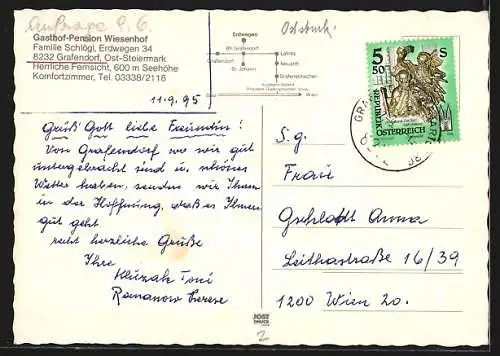 Gasthof-Pension Wiesenhof
Familie Schlögl, Erdwegen 34
8232 Grafendorf, Ost-Steiermark
Herrliche Fernsicht, 600 m Seehöhe
Komfortzimmer, Tel. 03338/2116
Erdwegen
Bh Grafendorf
Lafnitz
Grafendorf
Neustift
St. Johann
Grafenschachen
Wien
11.9.95
Grüß Gott liebe Freundin!
Von Grafendorf wo wir gut
untergebracht sind u. schönes
Wetter haben, senden wir Ihnen
in der Hoffnung, daß es Ihnen
gut geht
recht herzliche Grüße
Ihre
Toni
Romanow
5
50
S
REPUBLIK
ÖSTERREICH
S. g.
Frau
Anna
Leithastraße 16/39
1200 Wien 20.
JOST
DRUCK
2